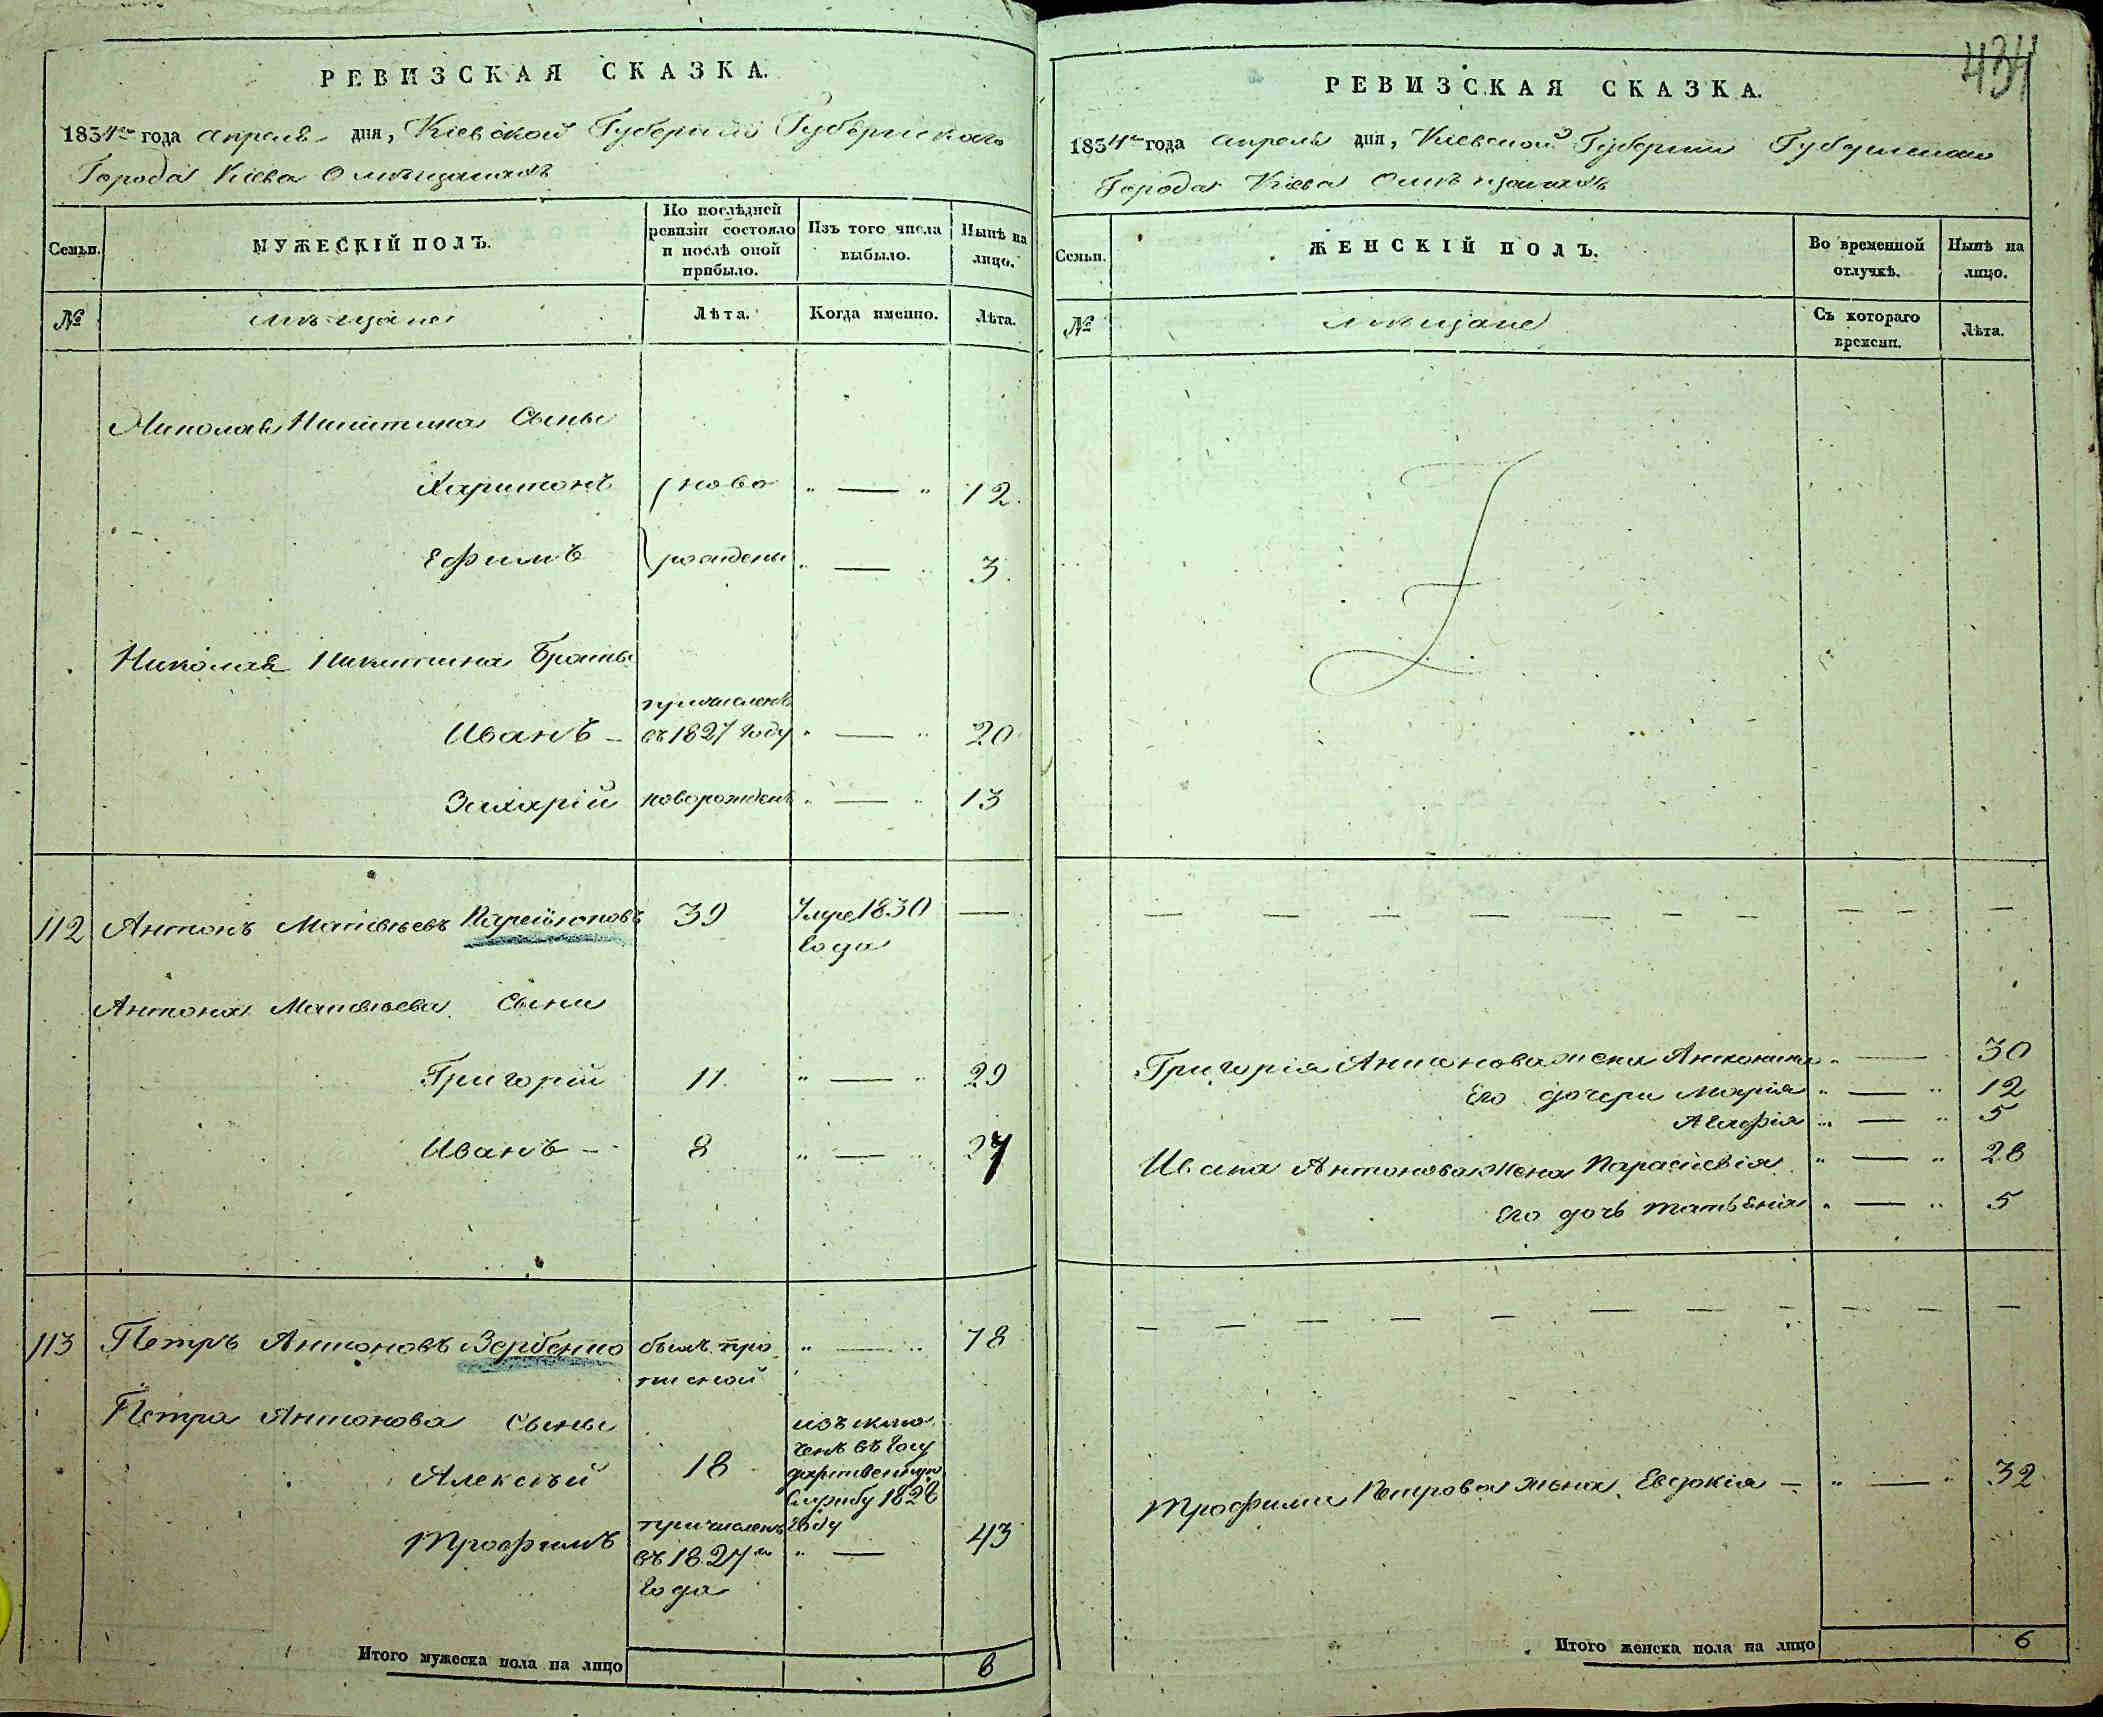 РЕВИЗСКАЯ СКАЗКА.
1834го года апреля дня, Кіевской Губерніи Губернскаго
Города Кіева О мѣщанахъ
Семьи.
МУЖЕСКІЙ ПОЛЪ.
По послѣдней ревизіи состояло и послѣ оной прибыло.
Изъ того числа выбыло.
Нынѣ на лицо.
№
мѣщане
Лѣта.
Когда именно.
Лѣта.
Николая Никитина Сыны
Харитонъ ново " — " 12.
Ефимъ рождены " — " 3.
Николая Никитина Братья
причисленъ
Иванъ – въ 1827 году " — " 20
Захарій новорожденъ " — " 13
112 Антонъ Матвѣевъ 39 Умре 1830 —
года
Антона Матвѣева Сыни
Григорій 11. " — " 29
Иванъ – 8 " — " 27
113 Петръ Антоновъ Вербенко былъ про " — " 78
писной
Петра Антонова Сыны изъ клю
Алексѣй 18 ченъ въ Госу
дарственную
Службу 1828
году
Трофимъ причисленъ " — 43
въ 1827м
года
Итого мужеска пола на лицо 6
434
РЕВИЗСКАЯ СКАЗКА.
1834го года апреля дня, Кіевской Губерніи Губернскаго
Города Кіева О мѣщанахъ
Семьи.
ЖЕНСКІЙ ПОЛЪ.
Во временной отлучкѣ.
Нынѣ на лицо.
№
мѣщане
Съ котораго времени.
Лѣта.
— — — — — — — — — — —
Григорія Антонова жена Антонина " — " 30
Его дочери Марія " — " 12
Агафія " — " 5
Ивана Антонова жена Параскевія " — " 28
Его дочь Татьяна " — " 5
— — — — — — — — — — —
Трофима Петрова жена Евдокія – " — " 32
Итого женска пола на лицо 6